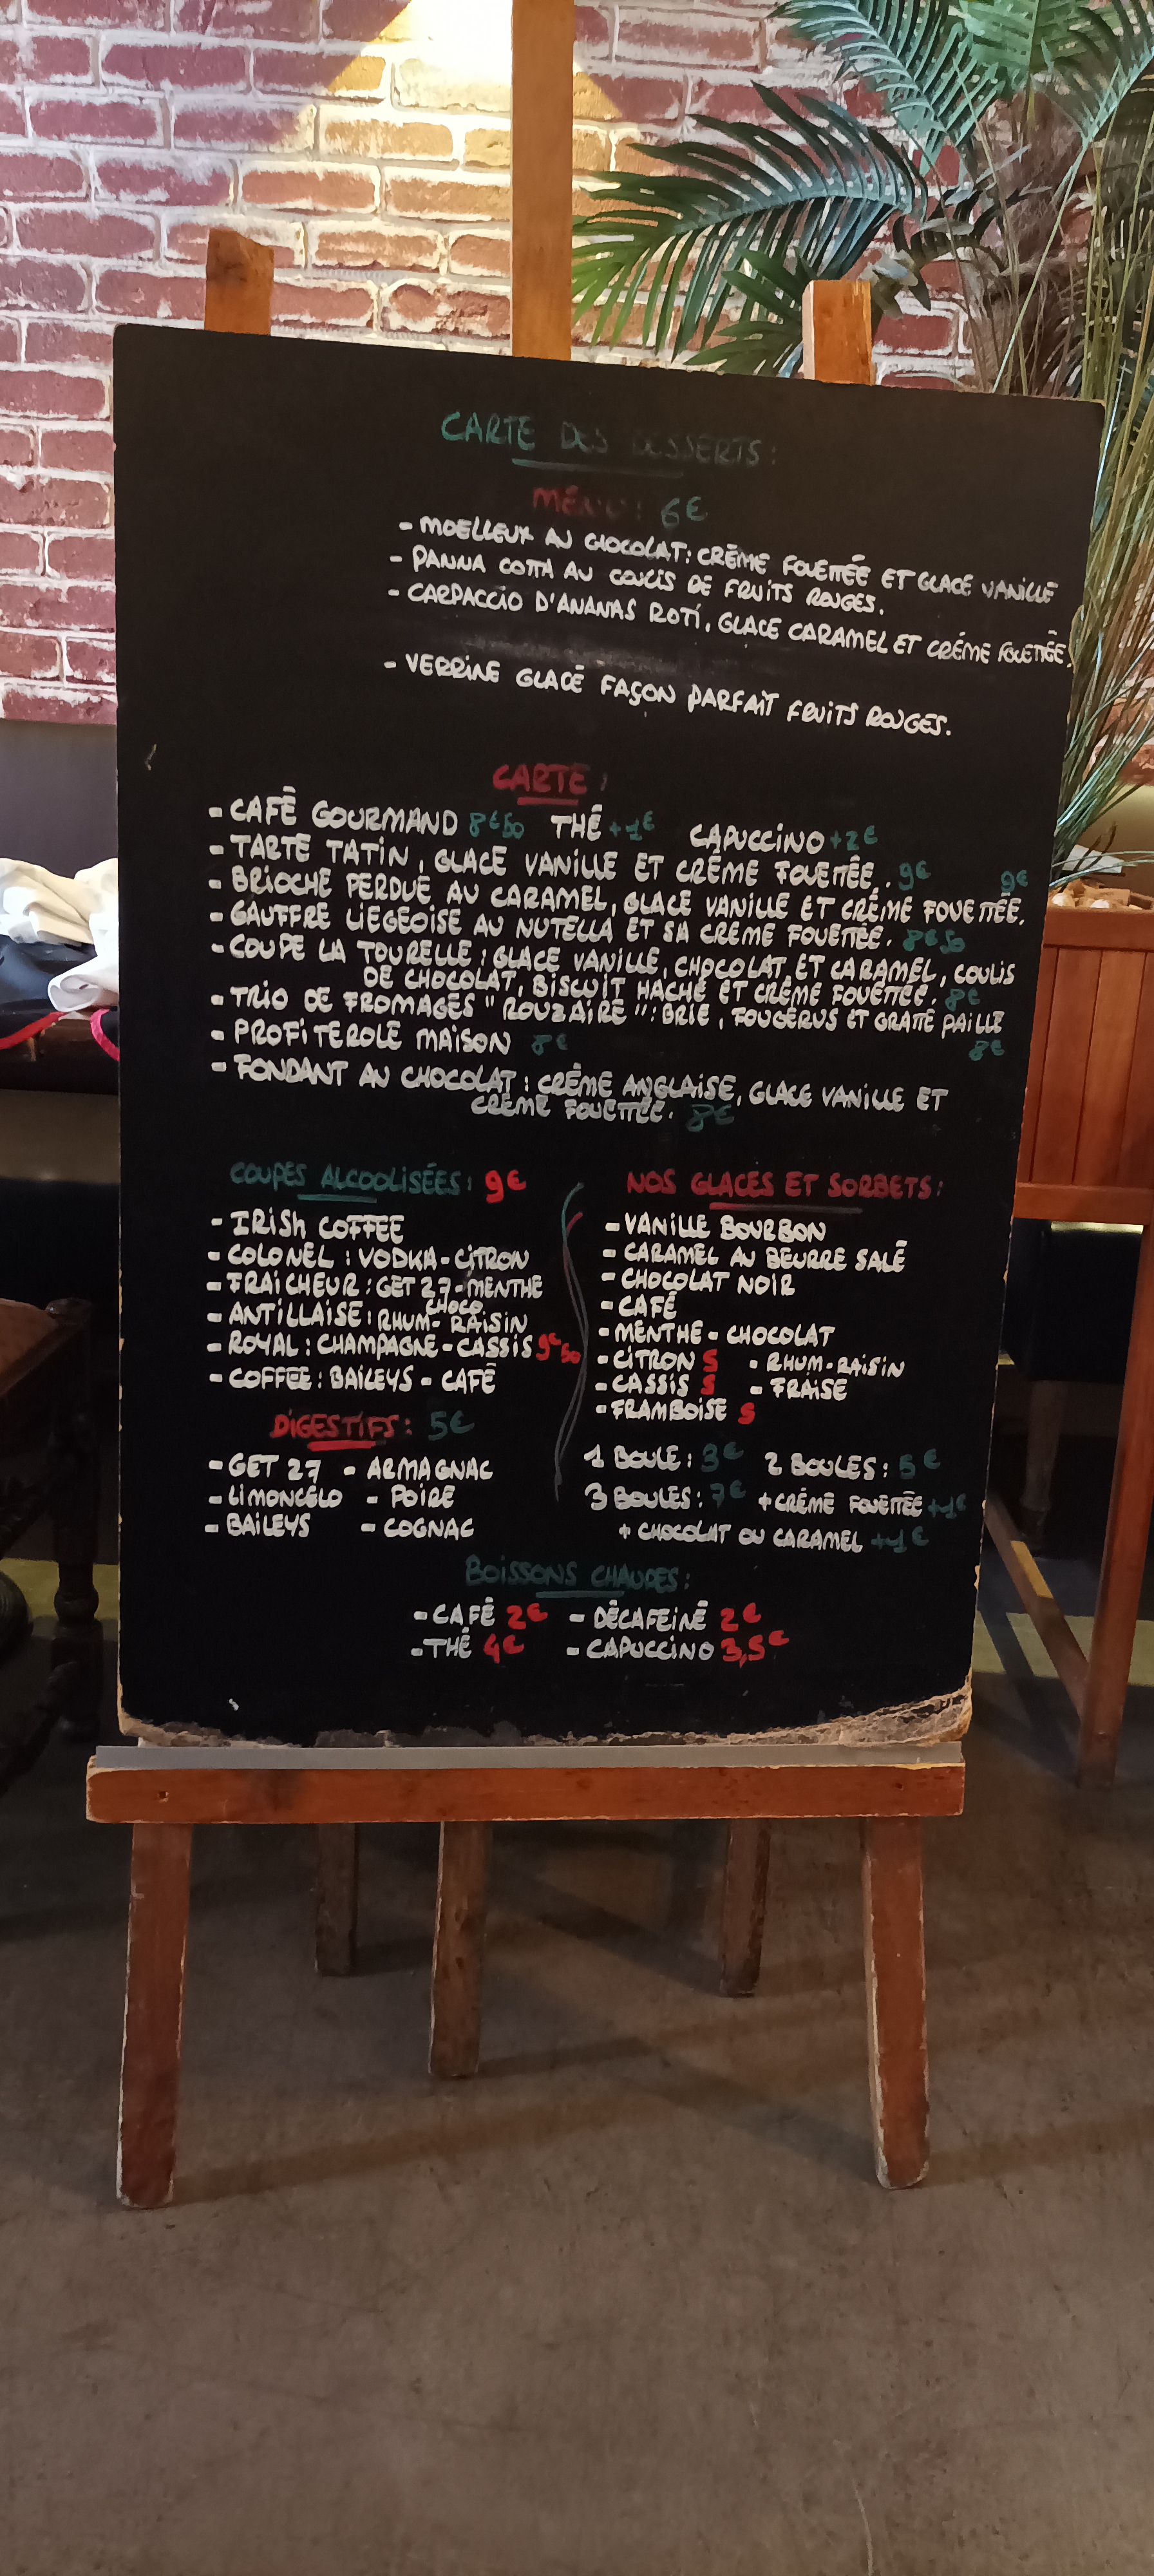 CARTE DES DESSERTS:
MENU: 6€
- MOELLEUX AU CHOCOLAT: CRÈME FOUETTÉE ET GLACE VANILLE
- PANNA COTTA AU COULIS DE FRUITS ROUGES.
- CARPACCIO D'ANANAS ROTI, GLACE CARAMEL ET CRÈME FOUETTÉE.
- VERRINE GLACÉ FAÇON PARFAIT FRUITS ROUGES.
CARTE:
- CAFÉ GOURMAND 8€50 THÉ +1€ CAPUCCINO +2€
- TARTE TATIN, GLACE VANILLE ET CRÈME FOUETTÉE. 9€
- BRIOCHE PERDUE AU CARAMEL, GLACE VANILLE ET CRÈME FOUETTÉE. 9€
- GAUFFRE LIEGEOISE AU NUTELLA ET SA CRÈME FOUETTÉE. 8€50
- COUPE LA TOURELLE: GLACE VANILLE, CHOCOLAT ET CARAMEL, COULIS
DE CHOCOLAT, BISCUIT HACHÉ ET CRÈME FOUETTÉE. 8€
- TRIO DE FROMAGES "ROUZAIRE": BRIE, FOUGERUS ET GRATTE PAILLE
8€
- PROFITEROLE MAISON 8€
- FONDANT AU CHOCOLAT: CRÈME ANGLAISE, GLACE VANILLE ET
CRÈME FOUETTÉE. 8€
COUPES ALCOOLISÉES: 9€
- IRISH COFFEE
- COLONEL: VODKA-CITRON
- FRAICHEUR: GET 27-MENTHE CHOCO
- ANTILLAISE: RHUM-RAISIN
- ROYAL: CHAMPAGNE-CASSIS 9€50
- COFFEE: BAILEYS - CAFÉ
DIGESTIFS: 5€
- GET 27 - ARMAGNAC
- LIMONCELO - POIRE
- BAILEYS - COGNAC
NOS GLACES ET SORBETS:
- VANILLE BOURBON
- CARAMEL AU BEURRE SALÉ
- CHOCOLAT NOIR
- CAFÉ
- MENTHE - CHOCOLAT
- CITRON S - RHUM-RAISIN
- CASSIS S - FRAISE
- FRAMBOISE S
1 BOULE: 3€ 2 BOULES: 5€
3 BOULES: 7€ + CRÈME FOUETTÉE +1€
+ CHOCOLAT OU CARAMEL +1€
BOISSONS CHAUDES:
- CAFÉ 2€ - DÉCAFEINÉ 2€
- THÉ 4€ - CAPUCCINO 3,5€